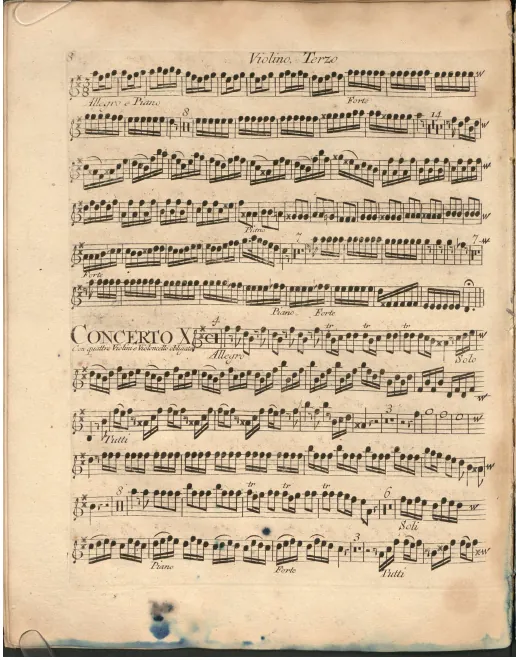 8
Violino. Terzo
Allegro e Piano Forte
8 14
Piano
7 7
Forte
Piano Forte
CONCERTO X
Con quattro Violini e Violoncello obligato
4 tr tr tr
Allegro Solo
3
Tutti
8 tr tr tr 6
Soli
3
Piano Forte Tutti